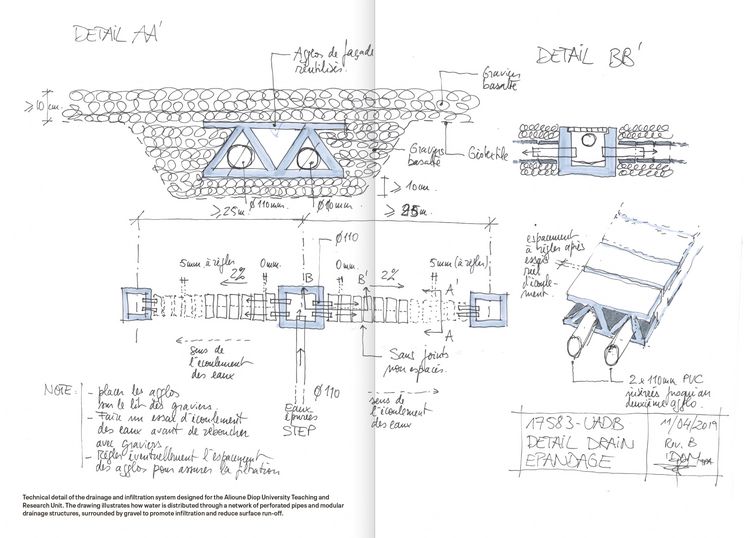 DETAIL AA'
Agglos de façade
réutilisés.
DETAIL BB'
Graviers
basalte
≥10cm.
Graviers
basalte
Géotextile
≥10cm.
Ø110mm.
Ø110mm.
≥25m.
≥25m.
Ø110
5mm à régler
2%
0mm.
B
0mm.
B'
2%
5mm (à régler)
A'
A
espacement
à régler après
essai
d'écoule-
ment.
sens de
l'écoulement
des eaux
Sans joints
non espacés.
Ø110
eaux
épurées
STEP
sens de
l'écoulement
des eaux
2x110mm PVC
insérés jusqu'au
deuxième agglo.
NOTE:
- placer les agglos
sur le lit des graviers.
- Faire un essai d'écoulement
des eaux avant de reboucher
avec graviers.
- Régler éventuellement l'espacement
des agglos pour assurer la filtration
17583-UADB
DETAIL DRAIN
EPANDAGE
11/04/2019
Rev. B
Technical detail of the drainage and infiltration system designed for the Alioune Diop University Teaching and
Research Unit. The drawing illustrates how water is distributed through a network of perforated pipes and modular
drainage structures, surrounded by gravel to promote infiltration and reduce surface run-off.